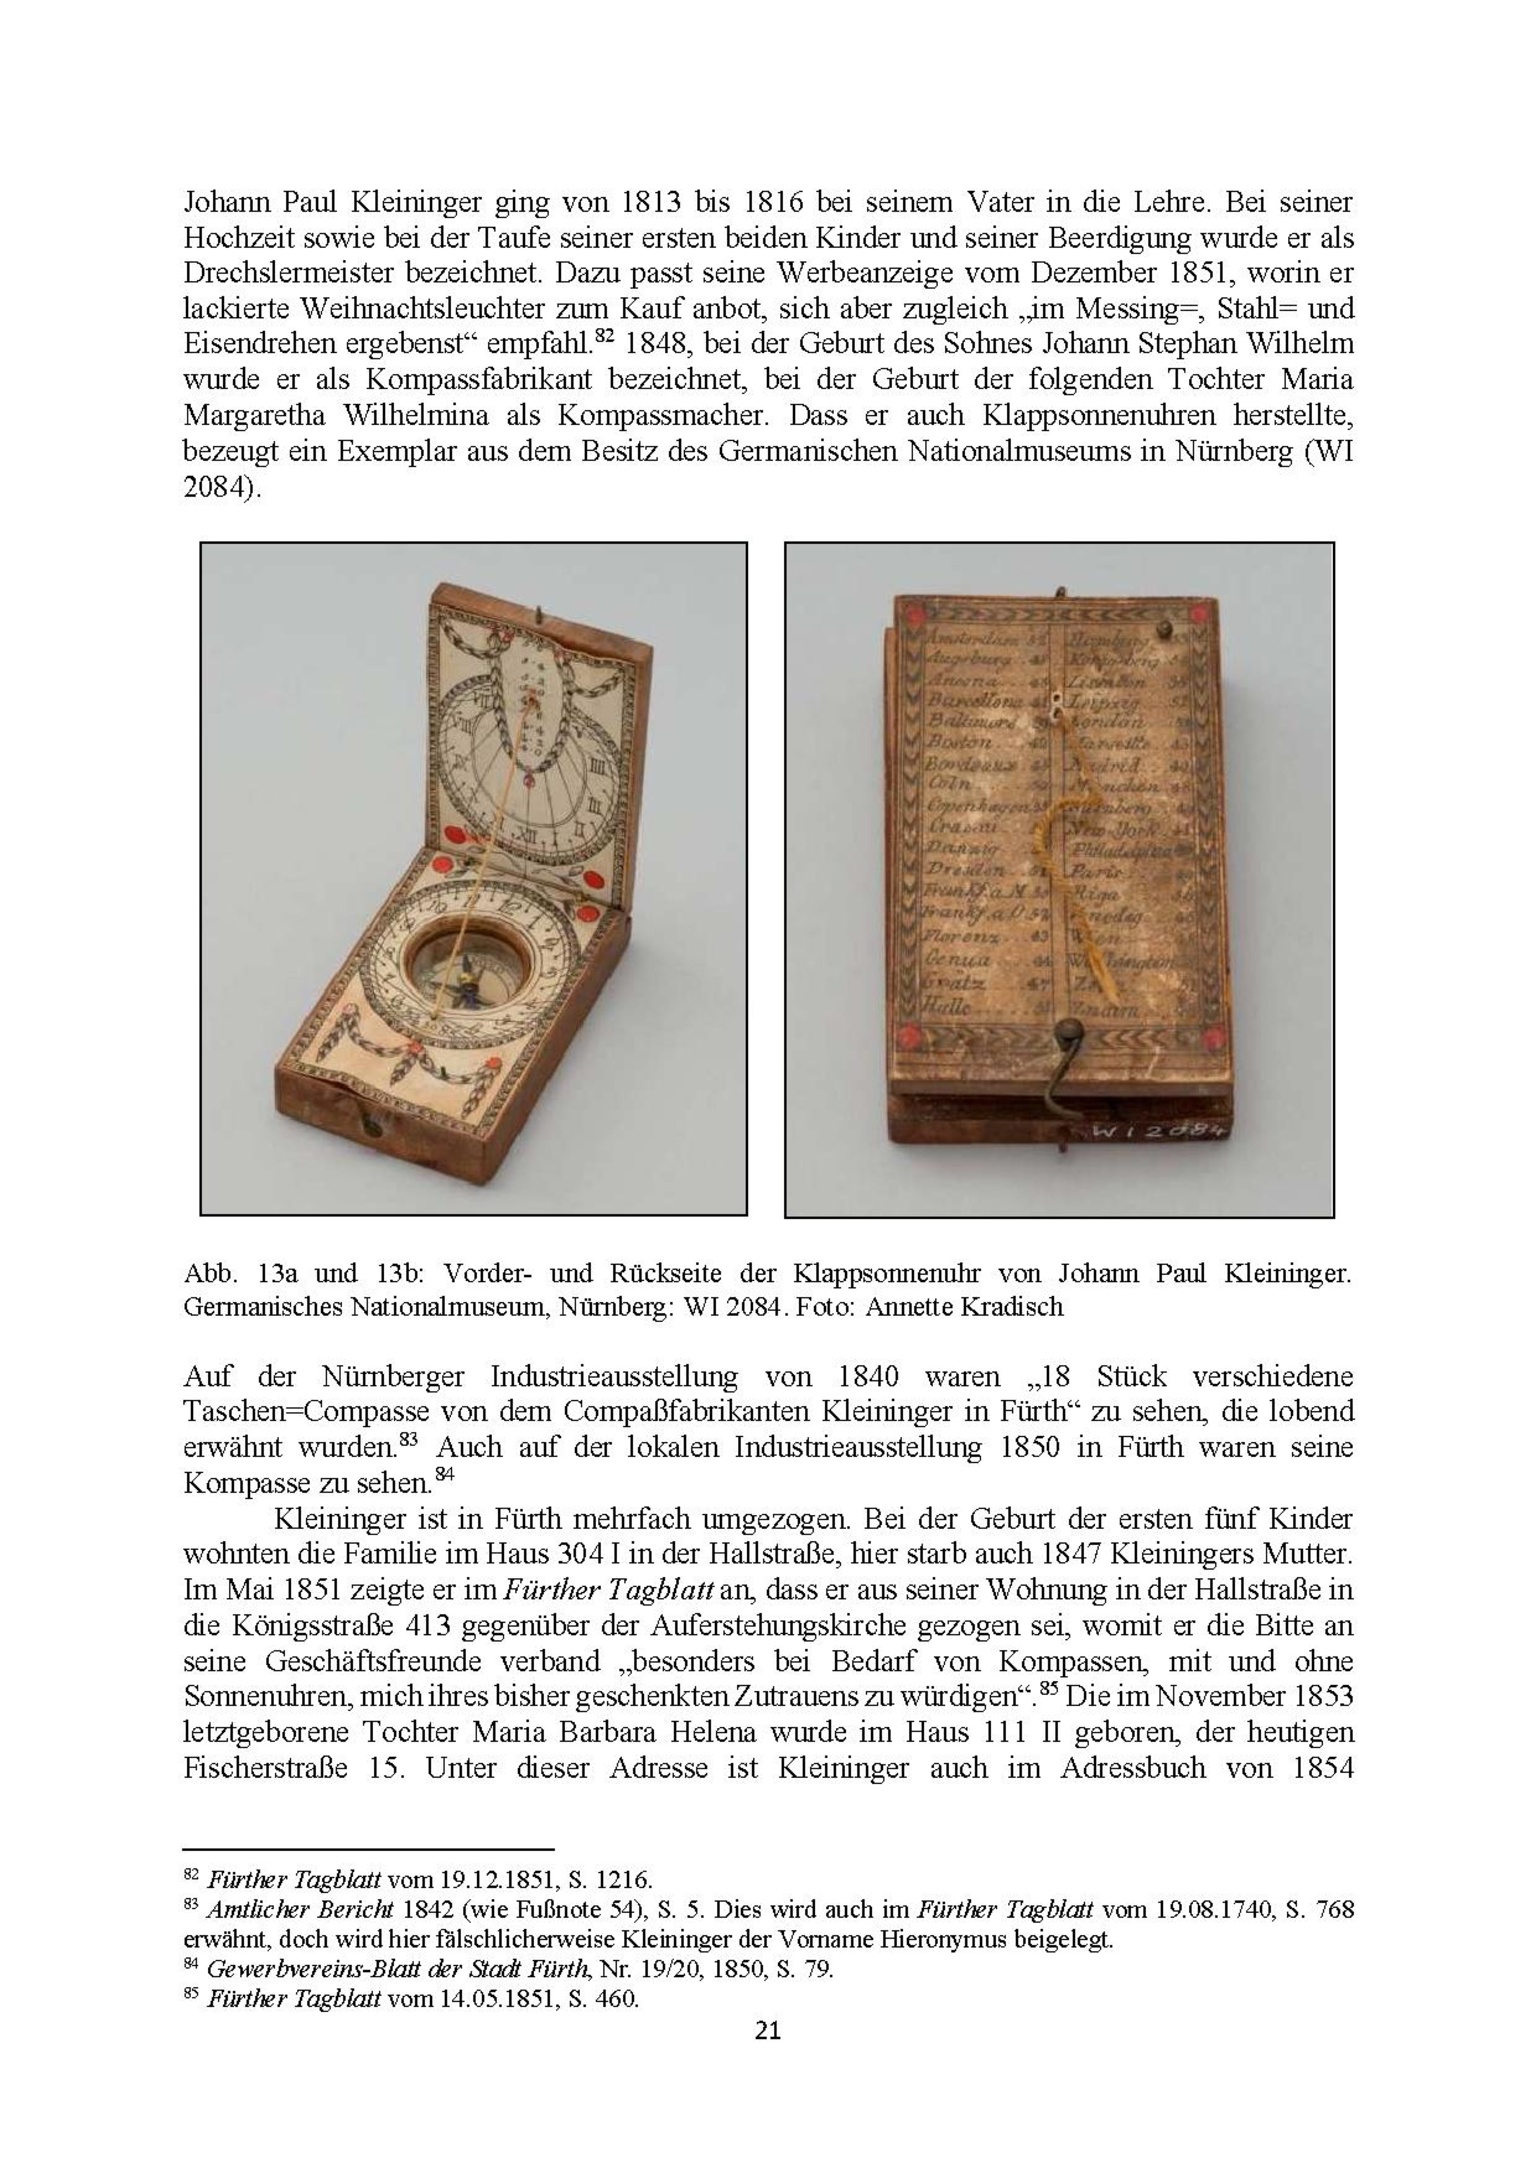 Johann Paul Kleininger ging von 1813 bis 1816 bei seinem Vater in die Lehre. Bei seiner
Hochzeit sowie bei der Taufe seiner ersten beiden Kinder und seiner Beerdigung wurde er als
Drechslermeister bezeichnet. Dazu passt seine Werbeanzeige vom Dezember 1851, worin er
lackierte Weihnachtsleuchter zum Kauf anbot, sich aber zugleich „im Messing=, Stahl= und
Eisendrehen ergebenst“ empfahl.82 1848, bei der Geburt des Sohnes Johann Stephan Wilhelm
wurde er als Kompassfabrikant bezeichnet, bei der Geburt der folgenden Tochter Maria
Margaretha Wilhelmina als Kompassmacher. Dass er auch Klappsonnenuhren herstellte,
bezeugt ein Exemplar aus dem Besitz des Germanischen Nationalmuseums in Nürnberg (WI
2084).
VII
IIII
III
II
XII
Amsterdam 52 Hamburg
Augsburg
Ancona Lissabon
Barcellona Leipzig
Baltimore London
Boston Marseille 43
Bordeaux Madrid
Cöln München
Copenhagen
Cracau New-York 41
Danzig Philadelphia
Dresden 51 Paris
Frankf. a. M. Riga
Frankf. a. O. 52 Venedig
Florenz 43 Wien
Genua 44 Washington
Grätz 47
Halle Znaim
WI 2084
Abb. 13a und 13b: Vorder- und Rückseite der Klappsonnenuhr von Johann Paul Kleininger.
Germanisches Nationalmuseum, Nürnberg: WI 2084. Foto: Annette Kradisch
Auf der Nürnberger Industrieausstellung von 1840 waren „18 Stück verschiedene
Taschen=Compasse von dem Compaßfabrikanten Kleininger in Fürth“ zu sehen, die lobend
erwähnt wurden.83 Auch auf der lokalen Industrieausstellung 1850 in Fürth waren seine
Kompasse zu sehen.84
Kleininger ist in Fürth mehrfach umgezogen. Bei der Geburt der ersten fünf Kinder
wohnten die Familie im Haus 304 I in der Hallstraße, hier starb auch 1847 Kleiningers Mutter.
Im Mai 1851 zeigte er im Fürther Tagblatt an, dass er aus seiner Wohnung in der Hallstraße in
die Königsstraße 413 gegenüber der Auferstehungskirche gezogen sei, womit er die Bitte an
seine Geschäftsfreunde verband „besonders bei Bedarf von Kompassen, mit und ohne
Sonnenuhren, mich ihres bisher geschenkten Zutrauens zu würdigen“.85 Die im November 1853
letztgeborene Tochter Maria Barbara Helena wurde im Haus 111 II geboren, der heutigen
Fischerstraße 15. Unter dieser Adresse ist Kleininger auch im Adressbuch von 1854
82 Fürther Tagblatt vom 19.12.1851, S. 1216.
83 Amtlicher Bericht 1842 (wie Fußnote 54), S. 5. Dies wird auch im Fürther Tagblatt vom 19.08.1740, S. 768
erwähnt, doch wird hier fälschlicherweise Kleininger der Vorname Hieronymus beigelegt.
84 Gewerbvereins-Blatt der Stadt Fürth, Nr. 19/20, 1850, S. 79.
85 Fürther Tagblatt vom 14.05.1851, S. 460.
21